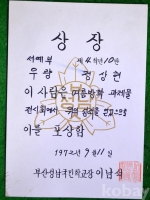 상장
서예부 제4학년10반
우량 정상현
이 사람은 여름방학 과제물
전시회에서 위의 성적을 얻었으므로
이를 포상함
1972년 9월 11일
부산성남국민학교장 이남식
kobay